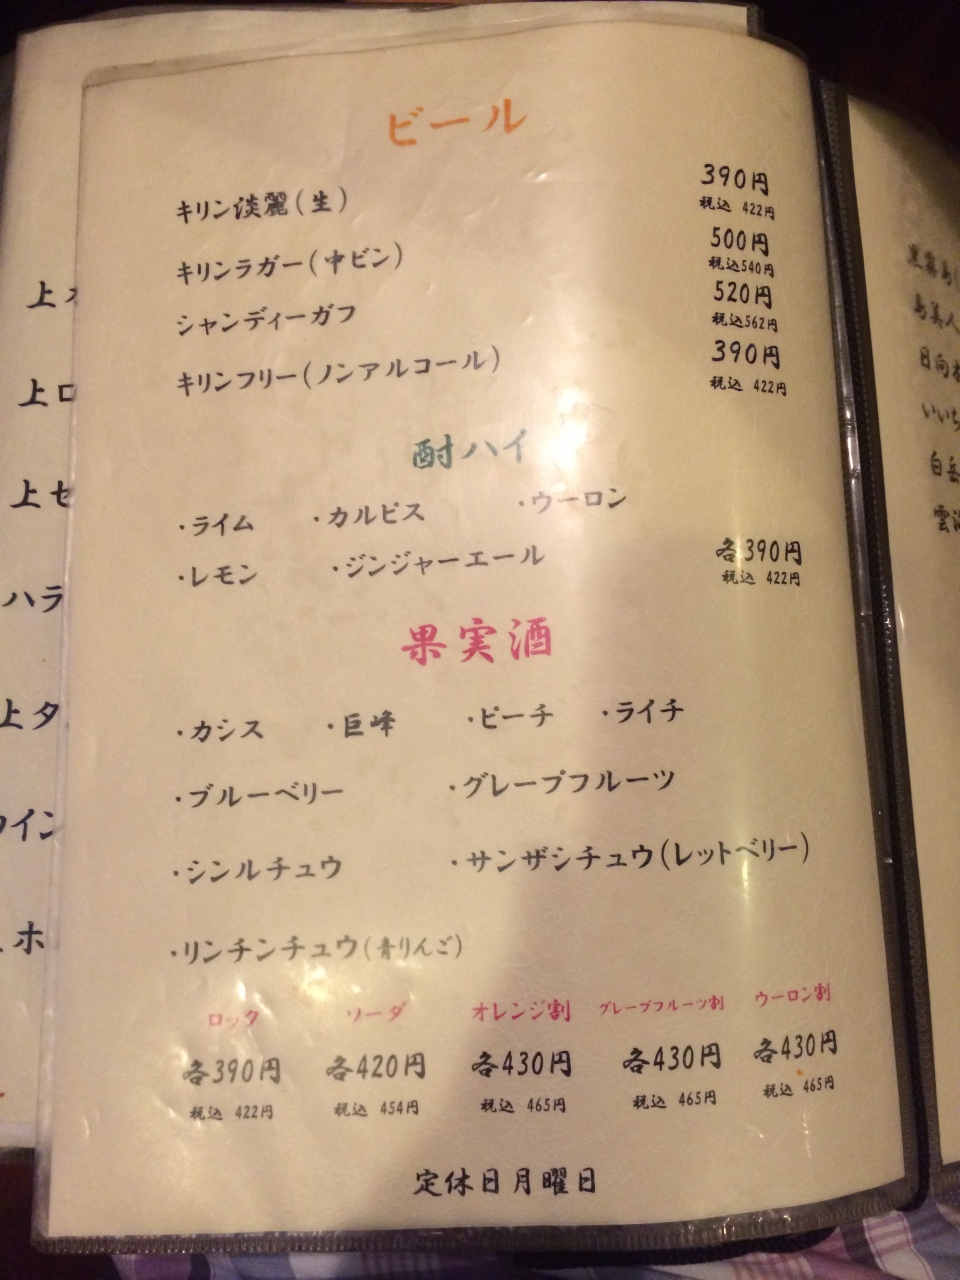 ビール
キリン淡麗(生) 390円
税込 422円
キリンラガー(中ビン) 500円
税込540円
シャンディーガフ 520円
税込562円
キリンフリー(ノンアルコール) 390円
税込 422円
酎ハイ
・ライム ・カルピス ・ウーロン
・レモン ・ジンジャーエール 各390円
税込 422円
果実酒
・カシス ・巨峰 ・ピーチ ・ライチ
・ブルーベリー ・グレープフルーツ
・シンルチュウ ・サンザシチュウ(レットベリー)
・リンチンチュウ(青りんご)
ロック ソーダ オレンジ割 グレープフルーツ割 ウーロン割
各390円 各420円 各430円 各430円 各430円
税込 422円 税込 454円 税込 465円 税込 465円 税込 465円
定休日月曜日
上
上ロ
上セ
ハラ
上タ
イン
ホ
黒霧島
島美人
日向
いいち
白岳
雲海